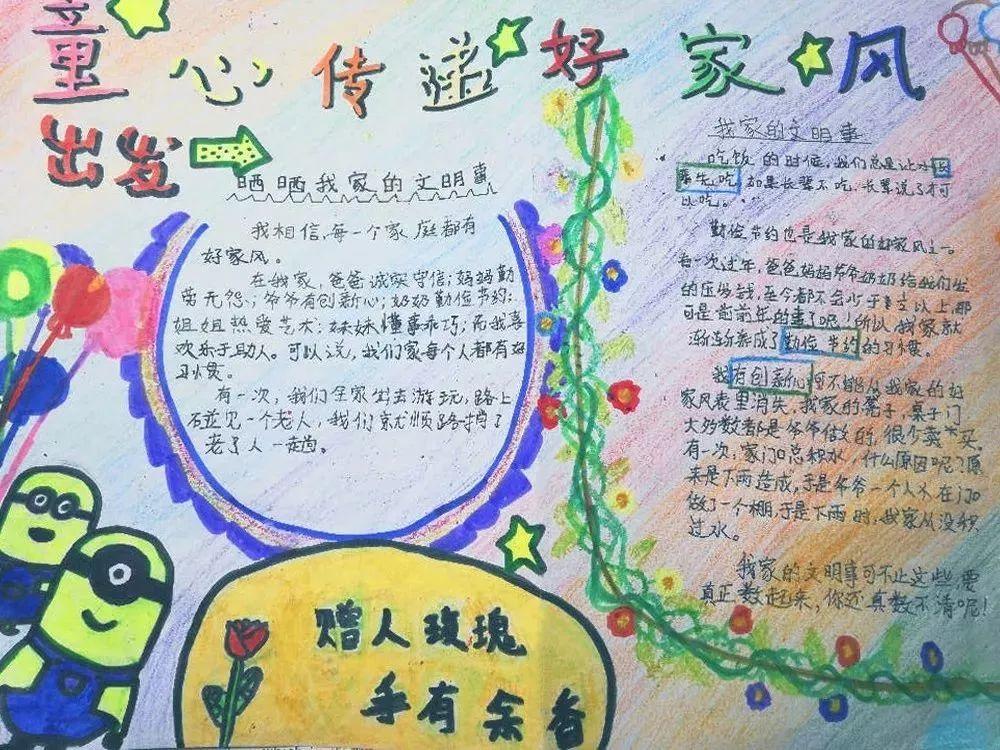 童心传递好家风
出发
晒晒我家的文明事
我相信,每一个家庭都有
好家风。
在我家,爸爸诚实守信;妈妈勤
劳无怨;爷爷有创新心;奶奶勤俭节约;
姐姐热爱艺术;妹妹懂事乖巧;而我喜
欢乐于助人。可以说,我们家每个人都有好
习惯。
有一次,我们全家出去游玩,路上
碰见一个老人,我们就顺路捎了
老人一趟。
赠人玫瑰
手有余香
我家的文明事
吃饭的时候,我们总是让长
辈先吃,如果长辈不吃,长辈说了才可
以吃。
勤俭节约也是我家的好家风之一。
有一次过年,爸爸妈妈爷爷奶奶给我们发
的压岁钱,至今都不会少于以上,那
可是前年的事了呢!所以,我家就
渐渐养成了勤俭节约的习惯。
我有创新心可不能从我家的好
家风表里消失,我家的凳子,桌子门
大多数都是爷爷做的,很少卖买
有一次,家门口总积水,什么原因呢?原
来是下雨造成,于是爷爷一个人在门口
做了一个棚,于是下雨时,我家从没积
过水。
我家的文明事可不止这些,要
真正数起来,你还真数不清呢!